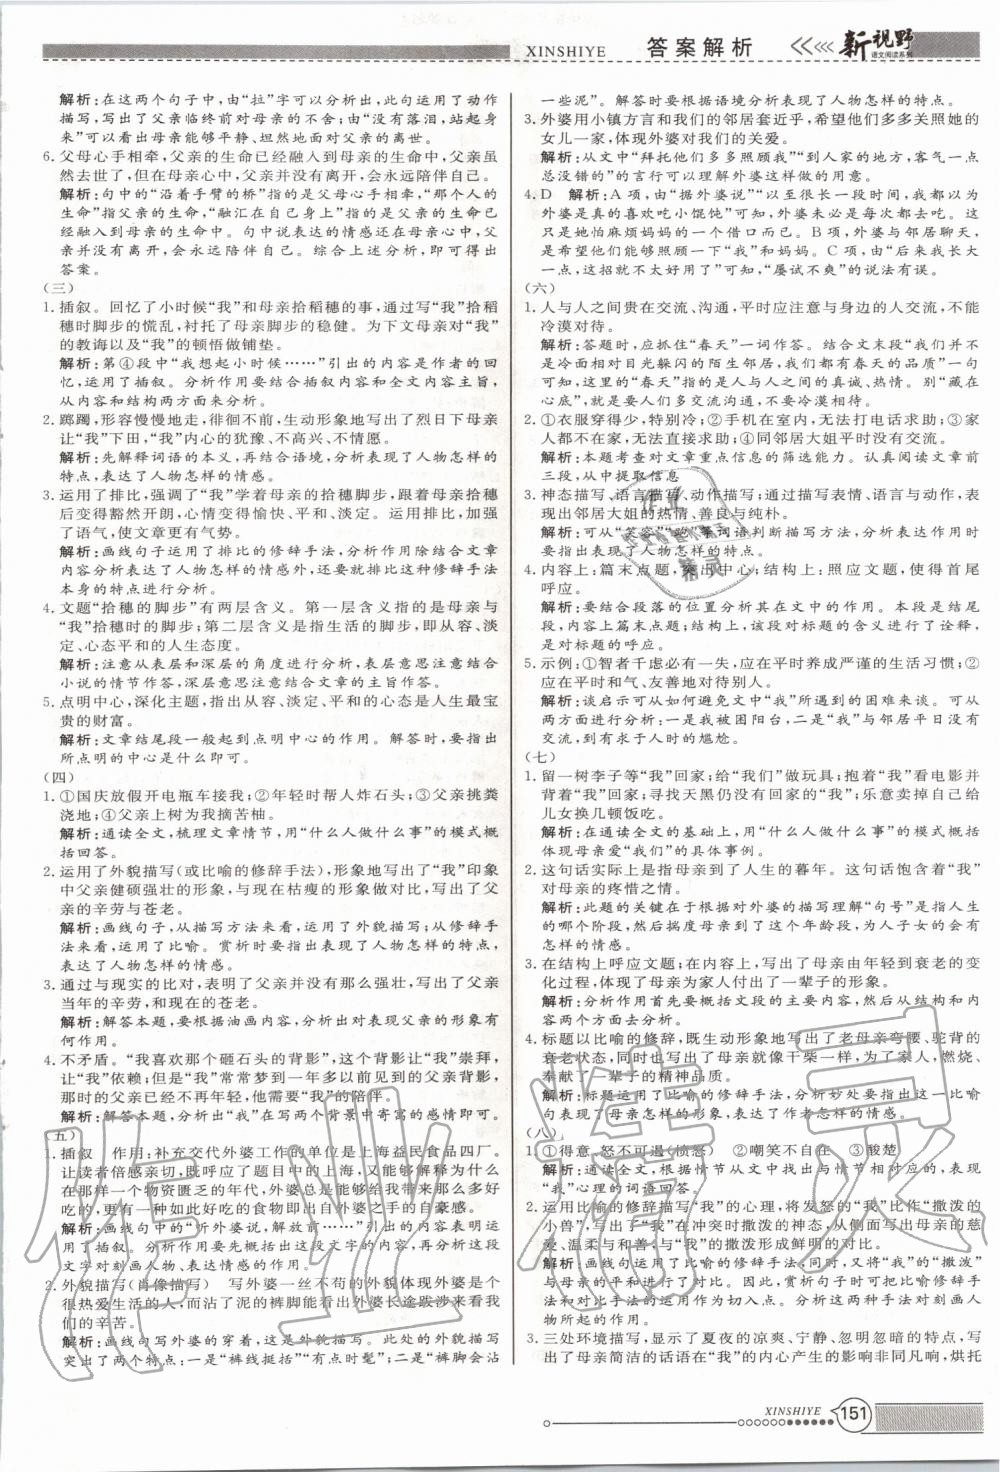 XINSHIYE 答案解析 新视野
语文阅读系列
解析:在这两个句子中,由“拉”字可以分析出,此句运用了动作
描写,写出了父亲临终前对母亲的不舍;由“没有落泪,站起身
来”可以看出母亲能够平静、坦然地面对父亲的离世。
6. 父母心手相牵,父亲的生命已经融入到母亲的生命中,父亲虽
然去世了,但在母亲心中,父亲并没有离开,会永远陪伴自己。
解析:句中的“沿着手臂的桥”指的是父母心手相牵,“那个人的
生命”指父亲的生命,“融汇在自己身上”指的是父亲的生命已
经融入到母亲的生命中。句中说表达的情感还在母亲心中,父
亲并没有离开,会永远陪伴自己。综合上述分析,即可得出
答案。
(三)
1. 插叙。回忆了小时候“我”和母亲拾稻穗的事,通过写“我”拾稻
穗时脚步的慌乱,衬托了母亲脚步的稳健。为下文母亲对“我”
的教诲以及“我”的顿悟做铺垫。
解析:第④段中“我想起小时候……”引出的内容是作者的回
忆,运用了插叙。分析作用要结合插叙内容和全文内容主旨,
从内容和结构两方面来分析。
2. 踯躅,形容慢慢地走,徘徊不前,生动形象地写出了烈日下母亲
让“我”下田,“我”内心的犹豫、不高兴的情感。
解析:先解释词语的本义,再结合语境,分析表现了人物怎样的
特点,表达了人物怎样的情感。
3. 运用了排比,强调了“我”学着母亲的拾穗脚步,跟着母亲拾穗
后变得豁然开朗,心情变得愉快、平和、淡定。运用排比,加强
了语气,使文章更有气势。
解析:画线句子运用了排比的修辞手法,分析作用除结合文章
内容分析表达人物怎样的情感外,还要要就排比这种修辞手法
本身的特点进行分析。
4. 文题“拾穗的脚步”有两层含义。第一层含义指的是母亲与
“我”拾穗时的脚步;第二层含义是指生活的脚步,即从容、淡
定、心态平和的人生态度。
解析:注意从表层和深层的角度进行分析,表层意思注意结合
小说的情节作答,深层意思注意结合文章的主旨作答。
5. 点明中心,深化主题,指出从容、淡定、平和的心态是人生最宝
贵的财富。
解析:文章结尾段一般起到点明中心的作用。解答时,要指出
所点明的中心是什么即可。
(四)
1. ①国庆放假开电瓶车接我;②年轻时帮人炸石头;③父亲挑粪
浇地;④父亲上树为我摘苦柚。
解析:通读全文,梳理文章情节,用“什么人做什么事”的模式概
括回答。
2. 运用了外貌描写(或比喻的修辞手法),形象地写出了“我”印象
中父亲健硕强壮的形象,与现在枯瘦的形象形成对比,写出了父
亲的辛劳与苍老。
解析:画线句子,从描写方法来看,运用了外貌描写;从修辞手
法来看,运用了比喻。赏析时要指出表现了人物怎样的特点,
表达了人物怎样的情感。
3. 通过与现实的比对,表明了父亲并没有那么强壮,写出了父亲
当年的辛劳和现在的苍老。
解析:解答本题,要根据油画内容,分析出对表现父亲的形象有
何作用。
4. 不矛盾。“我喜欢那个砸石头的背影”,这个背影让“我”崇拜,
让“我”依赖;但是“我”常常梦到一年多以前见到的父亲背影,
那时的父亲已经不再年轻,他需要“我”的陪伴。
解析:解答本题,分析出“我”在两个背景中寄寓的感情即可。
(五)
1. 插叙 作用:补充交代外婆工作的单位是上海益民食品四厂。
让读者倍感亲切,既呼应了题目中的上海,又能够解释为什么
在那样一个物资匮乏的年代,外婆总能够给我带来那么多的好
吃的,更有一种如此好吃的食物即出自外婆之手的自豪感。
解析:画线句中的“听外婆说,解放前……”引出的内容表明运
用了插叙。分析作用要先指出这段文字的内容,再分析这段文
字对刻画人物、表达情感的作用。
2. 外貌描写(肖像描写) 写外婆一丝不苟的外貌体现外婆是个
很热爱生活的人,而沾了泥的裤脚能看出外婆长途跋涉来看我
们的辛苦。
解析:画线句写外婆的穿着,这是外貌描写。此处的外貌描写
突出了两个特点:一是“裤线挺括”“有点时髦”;二是“裤脚会沾
一些泥”。解答时要根据语境分析表现了人物怎样的特点。
3. 外婆用小镇方言和我们的邻居套近乎,希望他们多多关照她的
女儿一家,体现外婆对我们的关爱。
解析:从文中“拜托他们多多照顾我”“到人家的地方,客气一点
总没错的”的言行可以理解外婆这样做的用意。
4. D 解析:A项,由“据外婆说”“以至很长一段时间,我都以
为外婆是真的喜欢吃小馄饨”可知,外婆未必是每次都去吃。这
只是她怕麻烦妈妈的一个借口而已。B项,外婆与邻居聊天,
是希望邻居能够多照顾“我”和妈妈。C项,由“后来我长大一
点,这些招数就不太好用了”可知,“屡试不爽”的说法有误。
(六)
1. 人与人之间贵在交流、沟通,平时应注意与身边的人交流,不能
冷漠对待。
解析:答题时,应抓住“春天”一词作答。结合文末段“我们并不
是冷面相对目光躲闪的陌生邻居,我们都有春天的品质”一句
可知,这里的“春天”指的是人与人之间的真诚、热情。别“藏在
心底”,就是要人们多交流沟通,不要冷漠相待。
2. ①衣服穿得少,特别冷;②手机在室内,无法打电话求助;③家
人都不在家,无法直接求助;④同邻居大姐平时没有交流。
解析:本题考查对文章重点信息的筛选能力。认真阅读文章前
三段,从中提取信息
3. 神态描写、语言描写、动作描写;通过描写表情、语言与动作,表
现出邻居大姐的热情、善良与纯朴。
解析:可从“笑容”“跑”等词语判断描写方法,分析表达作用时
要指出表现了人物怎样的特点。
4. 内容上:篇末点题,突出中心;结构上:照应文题,使得首尾
呼应。
解析:要结合段落的位置分析其在文中的作用。本段是结尾
段,内容上篇末点题;结构上,该段对标题的含义进行了诠释,
是对标题的呼应。
5. 示例:①智者千虑必有一失,应在平时养成严谨的生活习惯;②
应在平时和气、友善地对待别人。
解析:谈启示可以从如何避免文中“我”所遇到的困难来谈。可从
两方面进行分析:一是我被困阳台,二是“我”与邻居平日没有
交流,到有求于人时的尴尬。
(七)
1. 留一树李子等“我”回家;给“我们”做玩具;抱着“我”看电影并
背着“我”回家;寻找天黑仍没有回家的“我”;乐意卖掉自己给
儿女换几顿饭吃。
解析:在通读全文的基础上,用“什么人做什么事”的模式概括
体现母亲爱“我们”的具体事例。
2. 这句话实际上是指母亲到了人生的暮年。这句话饱含着“我”
对母亲的疼惜之情。
解析:此题的关键在于根据对外婆的描写理解“句号”是指人生
的哪个阶段,然后揣度母亲到了这个年龄段,为人子女的会有
怎样的情感。
3. 在结构上呼应文题;在内容上,写出了母亲由年轻到衰老的变
化过程,体现了母亲为家人付出了一辈子的形象。
解析:分析作用首先要概括文段的主要内容,然后从结构和内
容两个方面去分析。
4. 标题以比喻的修辞,既生动形象地写出了老母亲弯腰、驼背的
衰老状态,同时也写出了母亲就像干柴一样,为了家人,燃烧、
奉献了一辈子的精神品质。
解析:标题运用了比喻的修辞手法,分析妙处要指出这一比喻
句表现了母亲怎样的形象,表达了作者怎样的情感。
(八)
1. ①得意、怒不可遏(愤怒) ②嘲笑不自在 ③酸楚
解析:通读全文内容,根据情节发展,从文中找出相应的表现
“我”心理的词语回答。
2. 运用比喻的修辞描写“我”的心理,将发怒的“我”比作“撒泼的
小兽”,写出了“我”在冲突时撒泼的神态,从侧面写出母亲的慈
爱、温柔与和善,与“我”的撒泼形成鲜明的对比。
解析:画线句运用了比喻的修辞手法,分析时要把“我”的“撒泼”
与母亲的平和进行对比。因此,赏析句子时可把比喻修辞手
法和对比手法的运用作为切入点。分析这两种手法对刻画人
物所起的作用。
3. 三处环境描写,显示了夏夜的凉爽、宁静、忽亮忽暗的特点,写
出了母亲简洁的话语在“我”的内心产生的影响非同凡响,烘托
XINSHIYE 151
作业
精灵
作业精灵